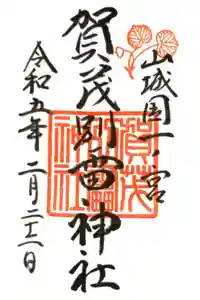 山城国一ノ宮
賀茂別雷神社
令和五年二月二十二日
賀茂
別雷
神社